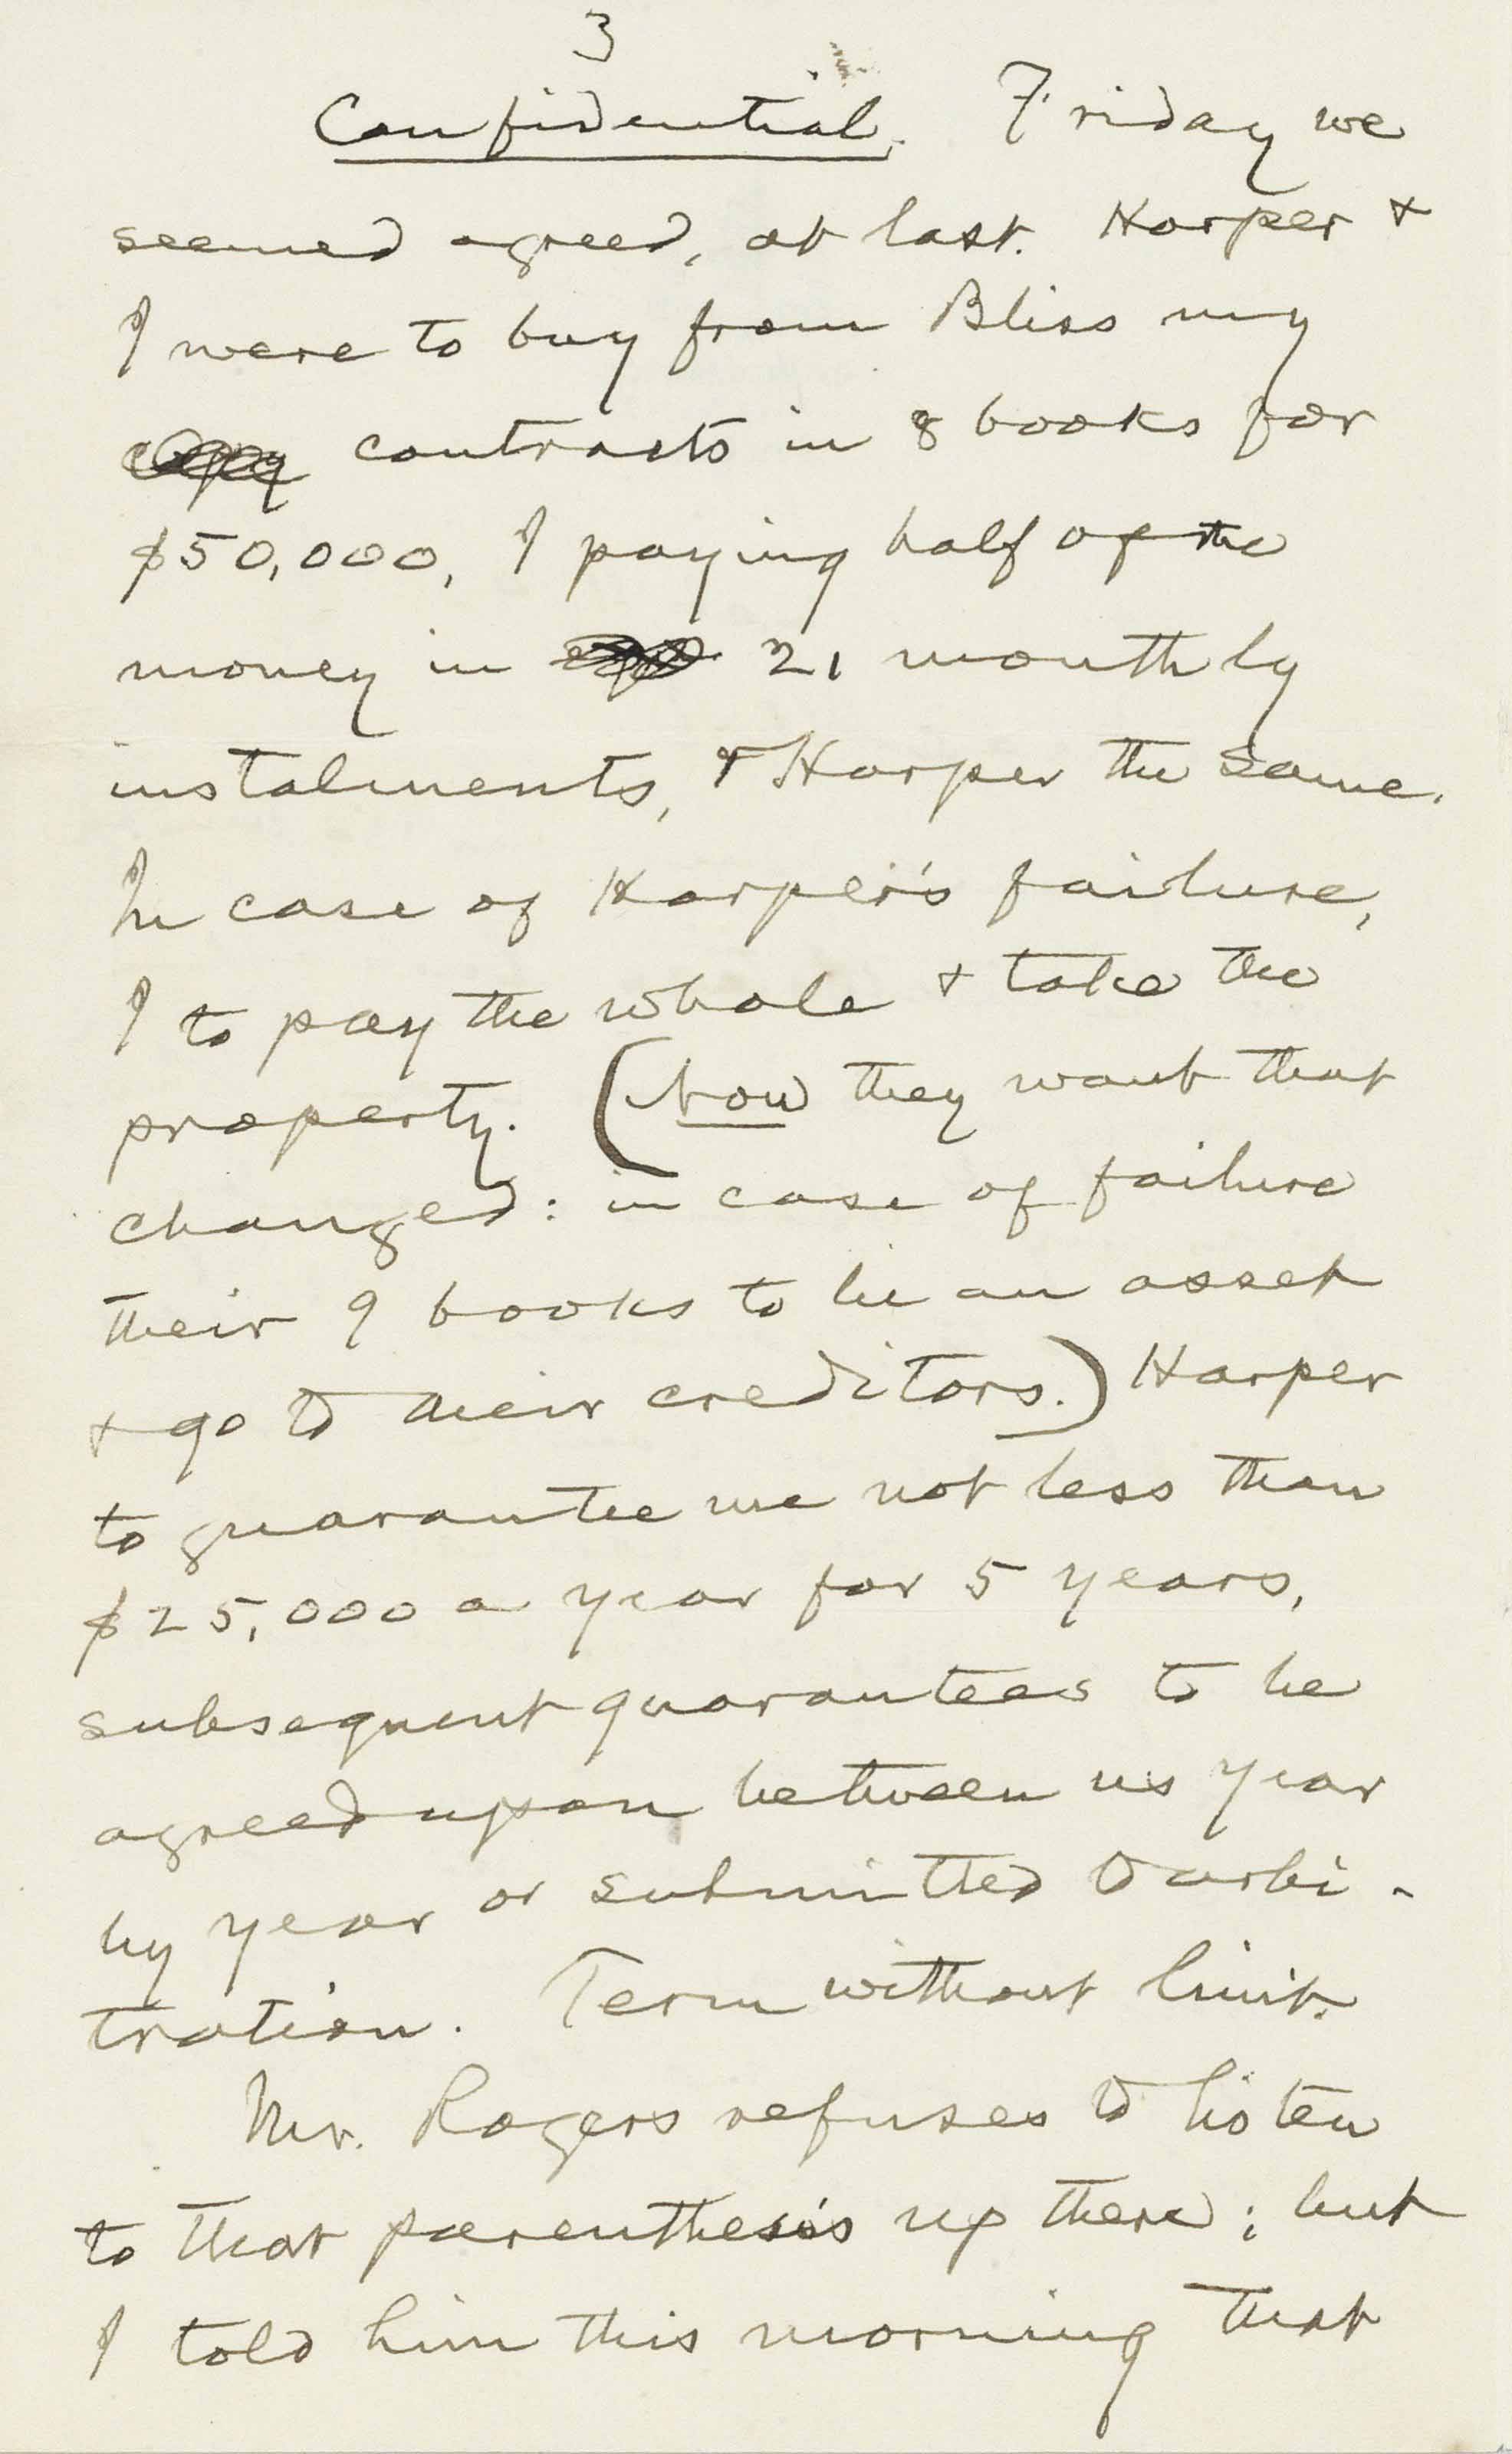 3
Confidential. Friday we
seemed agreed, at last. Harper &
I were to buy from Bliss my
contracts in 8 books for
$50,000, I paying half of the
money in 21 monthly
instalments, & Harper the same.
In case of Harper's failure,
I to pay the whole & take the
property. (Now they want that
changed: in case of failure
their 9 books to be an asset
& go to their creditors.) Harper
to guarantee me not less than
$25,000 a year for 5 years,
subsequent guarantees to be
agreed upon between us year
by year or submitted to arbi-
tration. Term without limit.
Mr. Rogers refuses to listen
to that parenthesis up there; but
I told him this morning that